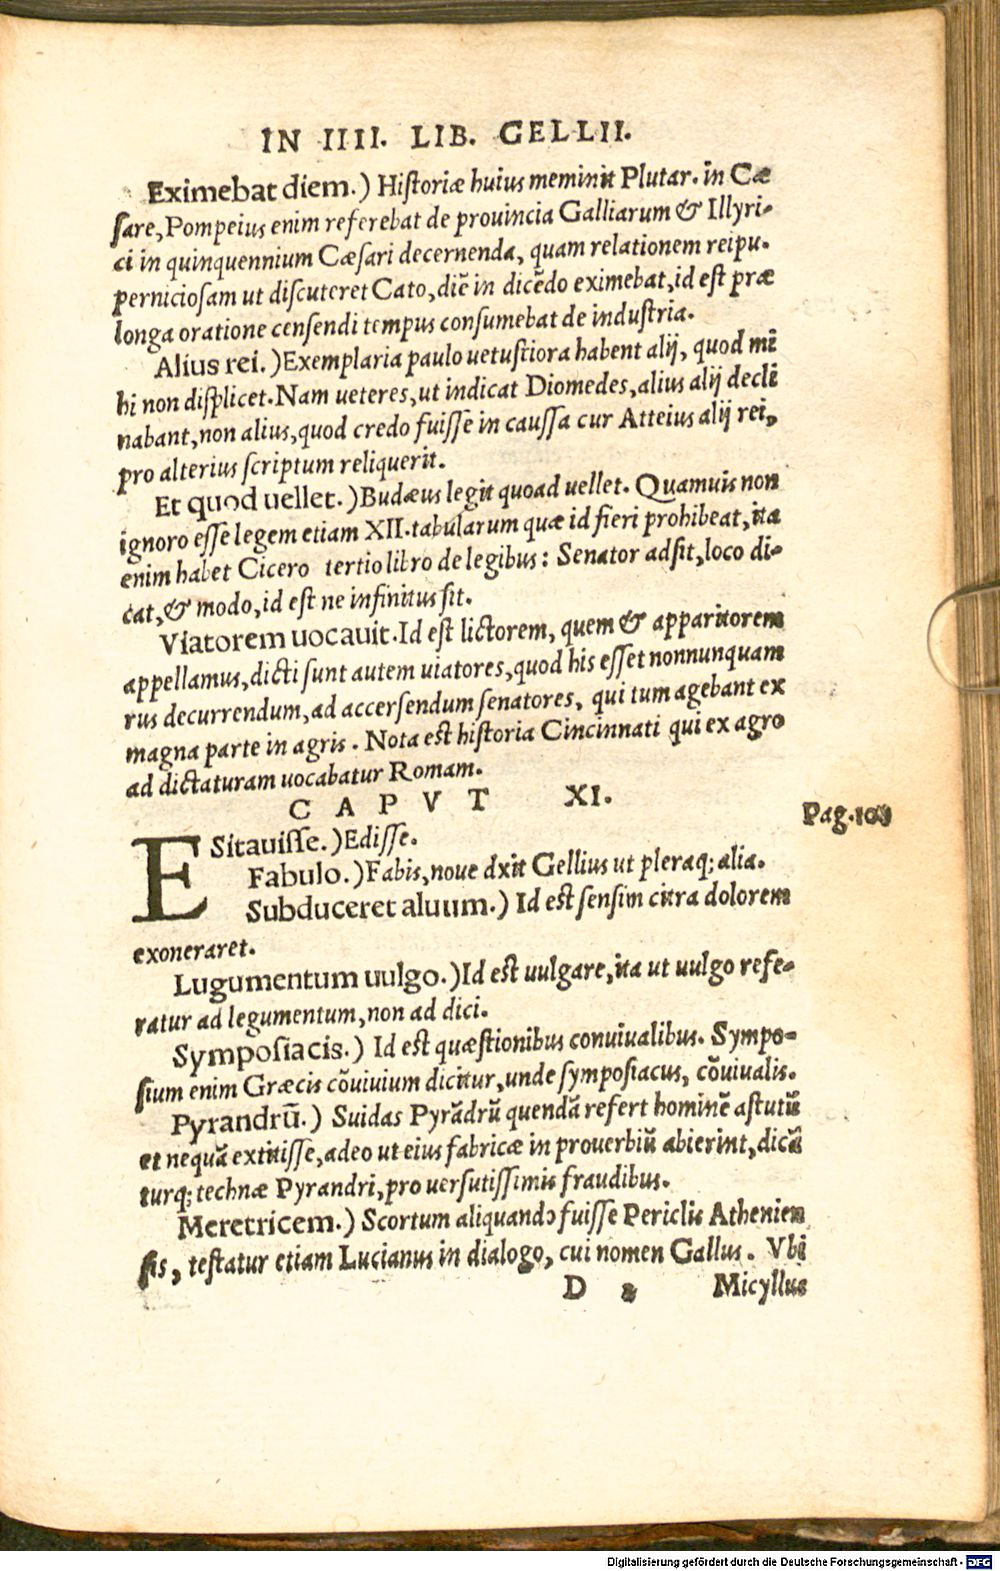 IN IIII. LIB. GELLII.
Eximebat diem.) Historiæ huius meminit Plutar. in Cæ
sare, Pompeius enim referebat de prouincia Galliarum & Illyri-
ci in quinquennium Cæsari decernenda, quam relationem reipu.
perniciosam ut discuteret Cato, diē in dicēdo eximebat, id est præ
longa oratione censendi tempus consumebat de industria.
Alius rei.) Exemplaria paulo uetustiora habent alij, quod mi
hi non displicet. Nam ueteres, ut indicat Diomedes, alius alij decli
nabant, non alius, quod credo fuisse in caussa cur Atteius alij rei,
pro alterius scriptum reliquerit.
Et quod uellet.) Budæus legit quoad uellet. Quamuis non
ignoro esse legem etiam XII. tabularum quæ id fieri prohibeat, ita
enim habet Cicero tertio libro de legibus: Senator adsit, loco di-
cat, & modo, id est ne infinitus sit.
Viatorem uocauit. Id est lictorem, quem & apparitorem
appellamus, dicti sunt autem uiatores, quod his esset nonnunquam
rus decurrendum, ad accersendum senatores, qui tum agebant ex
magna parte in agris. Nota est historia Cincinnati qui ex agro
ad dictaturam uocabatur Romam.
CAPVT XI.
Pag.109
ESitauisse.) Edisse.
Fabulo.) Fabis, noue dxit Gellius ut pleraq; alia.
Subduceret aluum.) Id est sensim citra dolorem
exoneraret.
Lugumentum uulgo.) Id est uulgare, ita ut uulgo refe-
ratur ad legumentum, non ad dici.
Symposiacis.) Id est quæstionibus conuiualibus. Sympo-
sium enim Græcis cōuiuium dicitur, unde symposiacus, cōuiualis.
Pyrandrū.) Suidas Pyrādrū quendā refert hominē astutū
et nequā extitisse, adeo ut eius fabricæ in prouerbiū abierint, dicū
turq; technæ Pyrandri, pro uersutissimis fraudibus.
Meretricem.) Scortum aliquando fuisse Periclis Athenien
sis, testatur etiam Lucianus in dialogo, cui nomen Gallus. Vbi
D 2 Micyllus
Digitalisierung gefördert durch die Deutsche Forschungsgemeinschaft - DFG